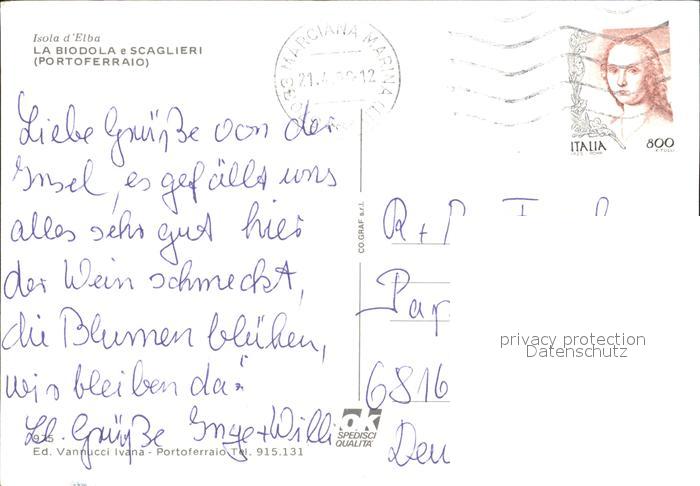 Isola d'Elba
LA BIODOLA e SCAGLIERI
(PORTOFERRAIO)
MARCIANA MARINA
ITALIA
800
Liebe Grüße von der
Insel, es gefällt uns
alles sehr gut hier
der Wein schmeckt,
die Blumen blühen,
wir bleiben da.
Lb. Grüße Inge + Willi
CO.GRAF s.r.l.
R +
Par
6816
Deu
privacy protection
Datenschutz
ok
SPEDISCI
QUALITA'
Ed. Vannucci Ivana - Portoferraio Tel. 915.131